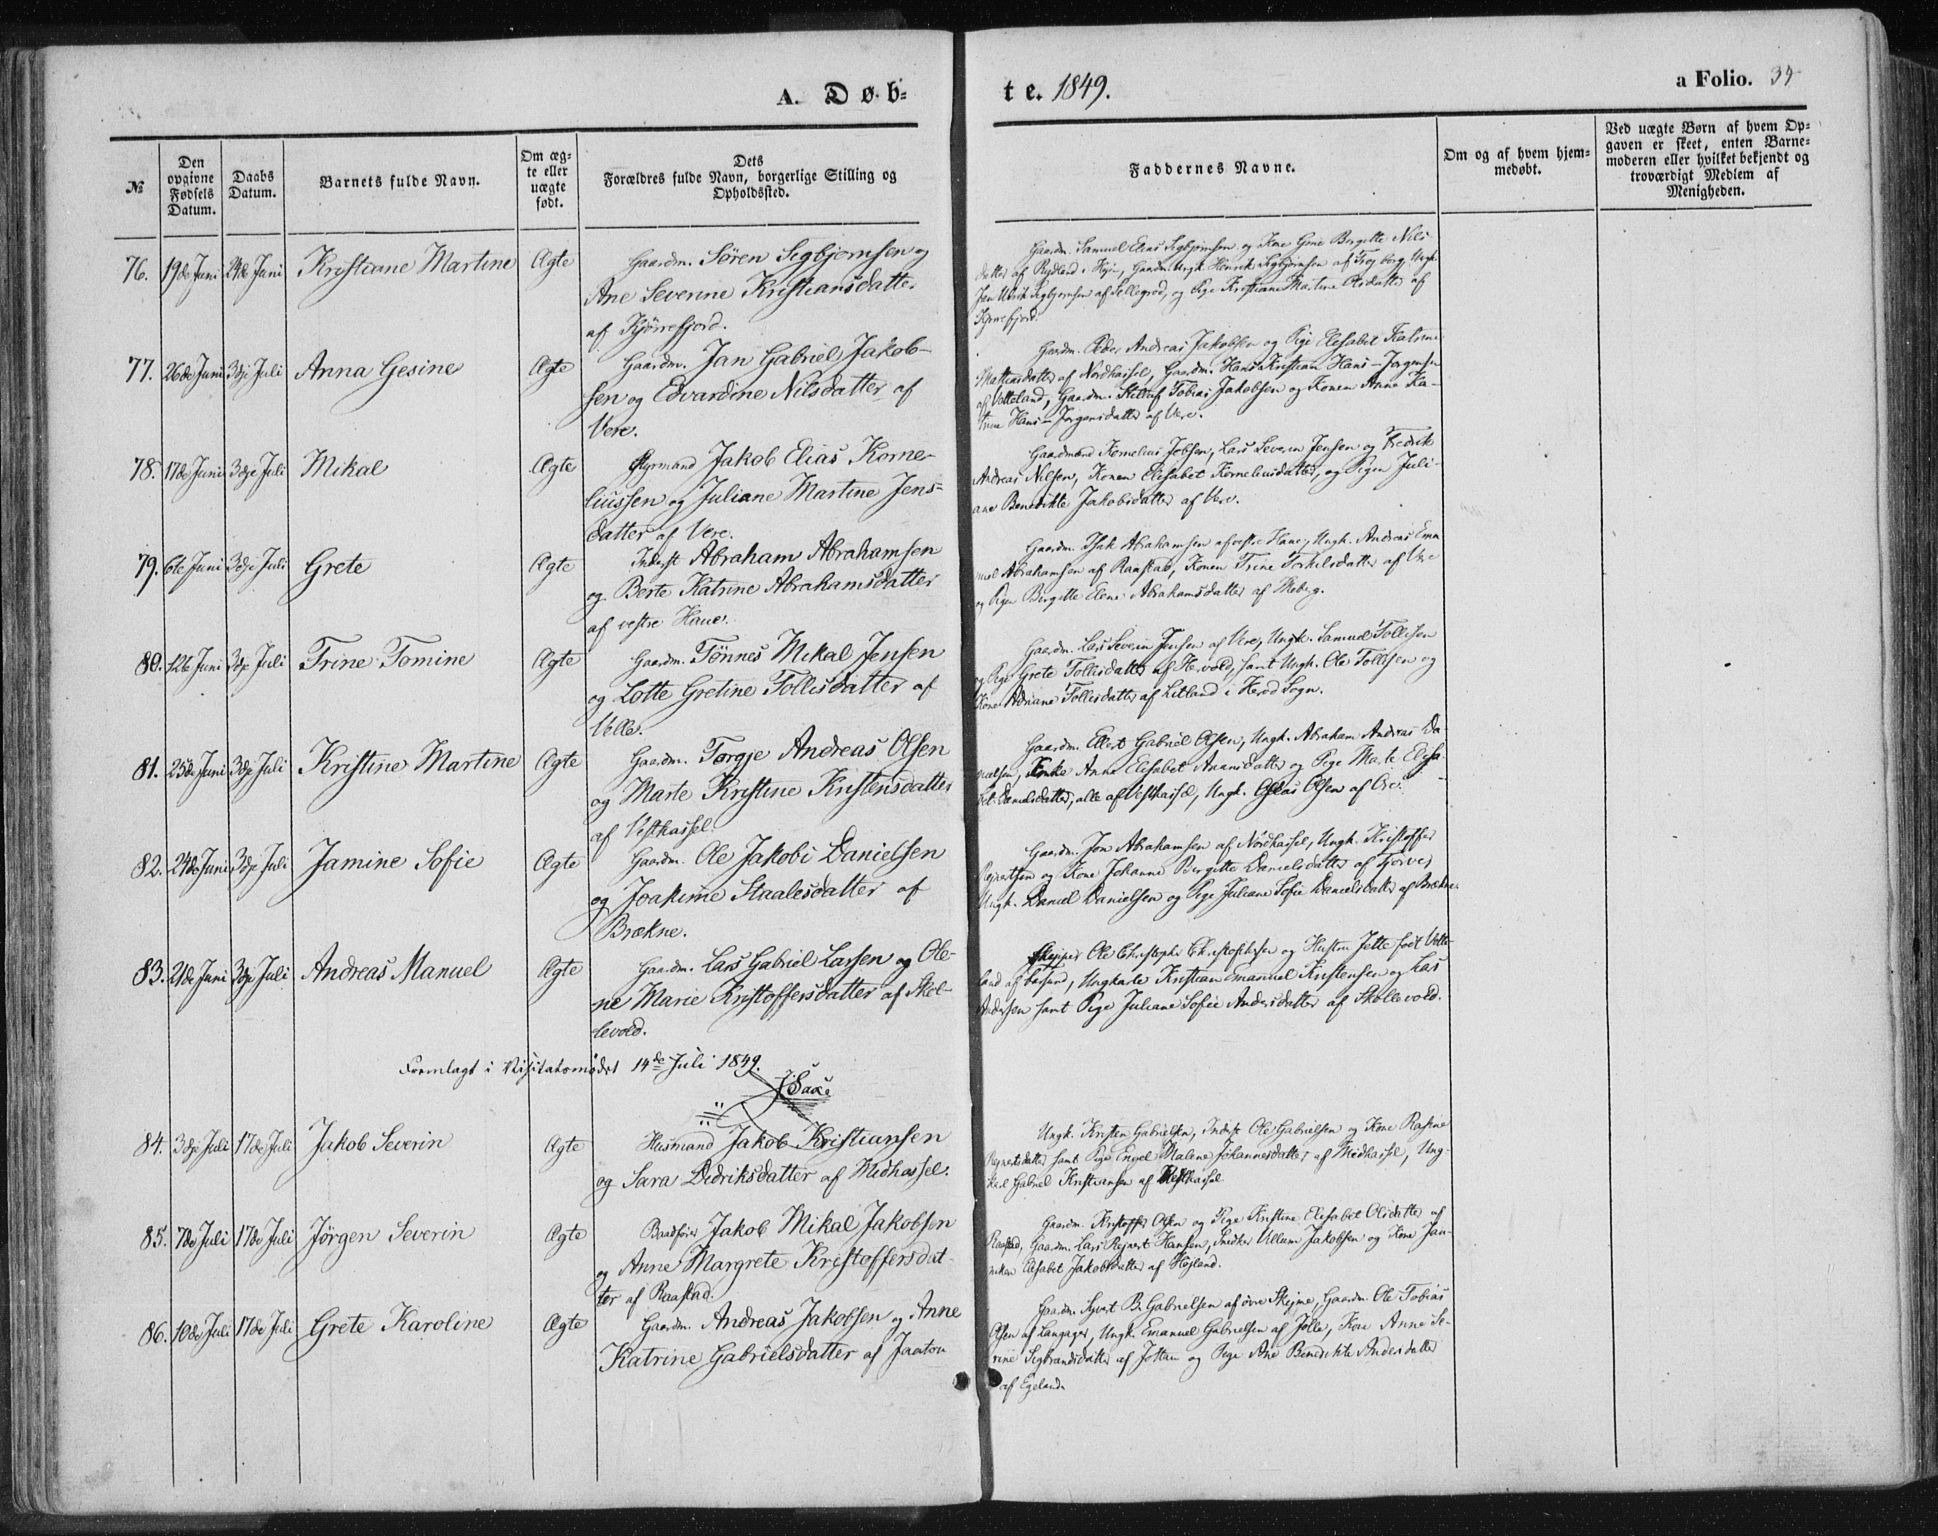 A. Døb-
te. 1849.
a Folio. 34
№
Den
opgivne
Fødsels
Datum.
Daabs
Datum.
Barnets fulde Navn.
Om æg-
te eller
uægte
født.
Dets
Forældres fulde Navn, borgerlige Stilling og
Opholdssted.
Faddernes Navne.
Om og af hvem hjem-
medøbt.
Ved uægte Børn af hvem Op-
gaven er skeet, enten Barne-
moderen eller hvilket bekjendt og
troværdigt Medlem af
Menigheden.
76. 19de Juni 24de Juni Kristiane Martine Ægte Gaardm. Søren Sigbjørnsen og
Ane Severine Kristiansdatter
af Kjørrefjord.
Gaardm. Samuel Elias Sigbjørnsen og Kone Gine Bergitte Nils
datter af Rydland i Hejm, Gaardm. Ungk. Henrik Sigbjørnsen af Tregborg, Ungk.
Jan Ulrik Sigbjørnsen af Sellegrod, og Pige Kristiane Martine Olsdatter af
Kjørrefjord.
77. 26de Juni 3dje Juli Anna Gesine Ægte Gaardm. Jan Gabriel Jakob-
sen og Edvardine Nilsdatter af
Vere.
Gaardm. Peder Andreas Jakobsen og Pige Elisabet Katrine
Mattiasdatter af Nordhassel, Gaardm. Hans Kristian Hans-Jørgensen
af Vetteland, Gaardm. Tobias Jakobsen og Konen Anne Ka-
trine Hans-Jørgensdatter af Vere.
78. 17de Juni 3dje Juli Mikal Ægte Styrmand Jakob Elias Korne-
liussen og Juliane Martine Jens-
datter af Vere.
Gaardmænd Kornelius Jobsen, Lars Severin Jensen og Fredrik
Andreas Nilsen, Konen Elisabet Korneliusdatter, og Pigen Juli-
ane Benedikte Jakobsdatter af Vere.
79. 6te Juni 3dje Juli Grete Ægte Inderst Abraham Abrahamsen
og Berte Katrine Abrahamsdatter
af vestre Haue.
Gaardm. Isak Abrahamsen af vestre Haue, Ungk. Andreas Ema
nuel Abrahamsen af Raastad, Konen Trine Torkilsdatter af Vere
og Pigen Bergitte Elene Abrahamsdatter af Moberg.
80. 12te Juni 3dje Juli Trine Tomine Ægte Gaardm. Tønnes Mikal Jensen
og Lotte Gretine Tollisdatter af
Velle.
Gaardm. Lars Severin Jensen af Vere, Ungk. Samuel Tollisen
og Pige Grete Tollisdatter af Hervold, samt Ungk. Ole Tollisen og
Kone Adriane Tollisdatter af Litland i Herød Sogn.
81. 25de Juni 3dje Juli Kristine Martine Ægte Gaardm. Torgje Andreas Olsen
og Marte Kristine Kristensdatter
af Vesthassel.
Gaardm. Ellert Gabriel Olsen, Ungk. Abraham Andreas Da-
nielsen, Enke Anne Elisabet Anansdatter og Pige Marte Elisa-
bet Danielsdatter, alle af Vesthassel, Ungk. Osclas Olsen af Ore.
82. 24de Juni 3dje Juli Jamine Sofie Ægte Gaardm. Ole Jakobi Danielsen
og Joakime Staalesdatter af
Brækne.
Gaardm. Jon Abrahamsen af Nordhassel, Ungk. Kristoffer
Rejnertsen og Kone Johanne Bergitte Danielsdatter af Tjørve,
Ungk. Daniel Danielsen og Pige Juliane Sofie Danielsdatter af Brækne.
83. 21de Juni 3dje Juli Andreas Manuel Ægte Gaardm. Lars Gabriel Larsen og Ole-
ne Marie Kristoffersdatter af Skol-
levold.
Skipper Ole Christopher Christophersen og Hustru Jette født Vette-
land af Farsund, Ungkarle Kristian Emanuel Kristensen og Lars
Andersen samt Pige Juliane Sofie Andersdatter af Skollevold.
Fremlagt i Visitatsmødet 14de Juli 1849.
J Saxe
84. 3dje Juli 17de Juli Jakob Severin Ægte Husmand Jakob Kristiansen
og Sara Didriksdatter af Midhassel.
Ungk. Kristen Gabrielsen, Inderst Ole Gabrielsen og Kone Rasine
Rejnertsdatter samt Pige Engel Malene Johannesdatter af Midhassel, Ung-
karl Gabriel Kristiansen af Vesthassel
85. 7de Juli 17de Juli Jørgen Severin Ægte Baadfører Jakob Mikal Jakobsen
og Anne Margrete Kristoffersdat-
ter af Raastad.
Gaardm. Kristoffer Olsen og Pige Kristine Elisabet Olsdatter af
Raastad, Gaardm. Lars Rejnert Hansen, Snedker Villum Jakobsen og Kone Jan-
niken Elisabet Jakobsdatter af Højland.
86. 10de Juli 17de Juli Grete Karoline Ægte Gaardm. Andreas Jakobsen og Anne
Katrine Gabrielsdatter af Jaaton
Gaardm. Syvert B. Gabrielsen af øvre Skejme, Gaardm. Ole Tobias
Olsen af Langager, Ungk. Emanuel Gabrielsen af Jølle, Kone Anne Se-
rine Sigbrandsdatter af Jottan og Pige Ane Benedikte Andersdatter
af Egeland.